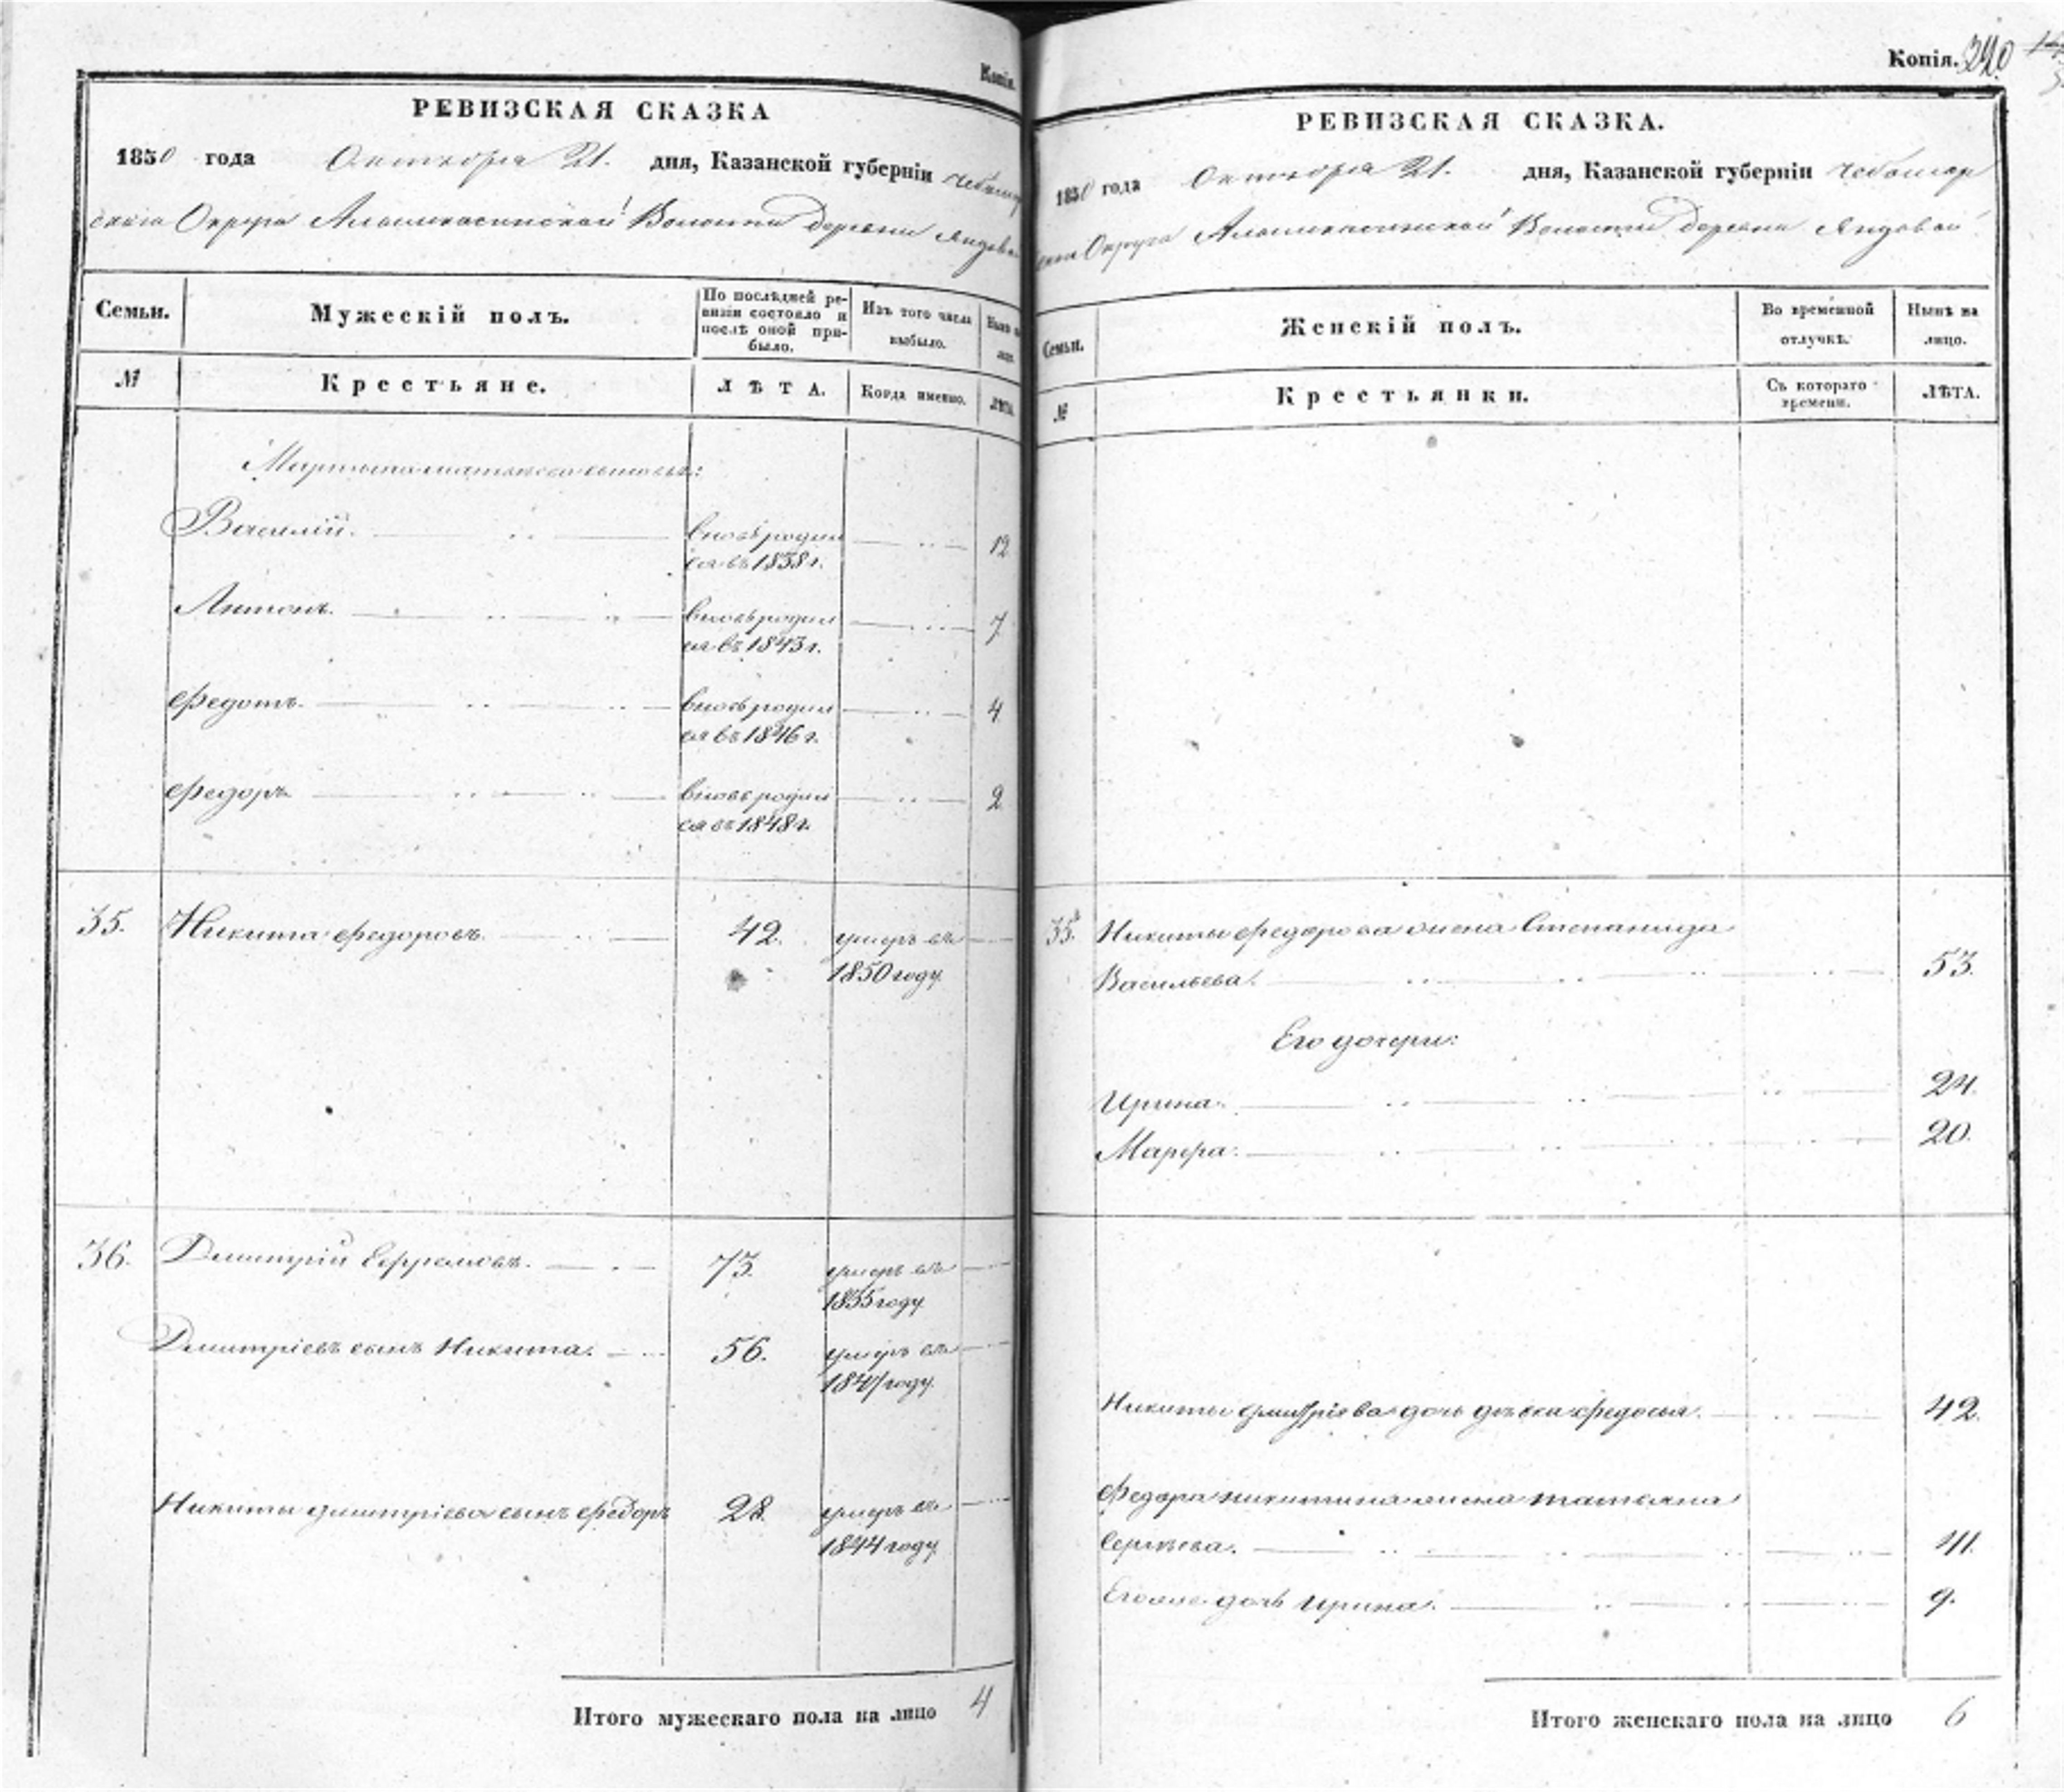 Копія.
РЕВИЗСКАЯ СКАЗКА
1850 года Октября 21. дня, Казанской губерніи Чебоксар
скаго Округа Волости Деревни Яндовой
Семьи. Мужескій полъ. По послѣдней ре-
визіи состояло и
послѣ оной при-
было. Изъ того числа
выбыло. Нынѣ на
лицо.
№ Крестьяне. ЛѢТА. Когда именно. ЛѢТА.
сыновья:
Василій. вновь родил 12
ся въ 1838 г.
Антонъ. вновь родил 7
ся въ 1843 г.
Федотъ. вновь родил 4
ся въ 1846 г.
Федоръ вновь родил 2
ся въ 1848 г.
35. Никита Федоровъ. 42. умеръ въ
1850 году
36. Дмитрій Ефремовъ. 73. умеръ въ
1835 году
Дмитріевъ сынъ Никита. 56. умеръ въ
году
Никиты Дмитріева сынъ Федоръ 28. умеръ въ
1844 году
Итого мужескаго пола на лицо 4
Копія. 340
РЕВИЗСКАЯ СКАЗКА.
1850 года Октября 21. дня, Казанской губерніи Чебоксар
скаго Округа Волости Деревни Яндовой
Семьи. Женскій полъ. Во временной
отлучкѣ. Нынѣ на
лицо.
№ Крестьянки. Съ котораго
времени. ЛѢТА.
35. Никиты Федорова жена Степанида
Васильева. 53.
Его дочери:
Ирина. 24.
Марфа. 20.
Никиты Дмитріева дочь дѣвка Федосья. 42.
Федора Никитина жена Татьяна
Сергѣева. 41.
Его же дочь Ирина. 9.
Итого женскаго пола на лицо 6